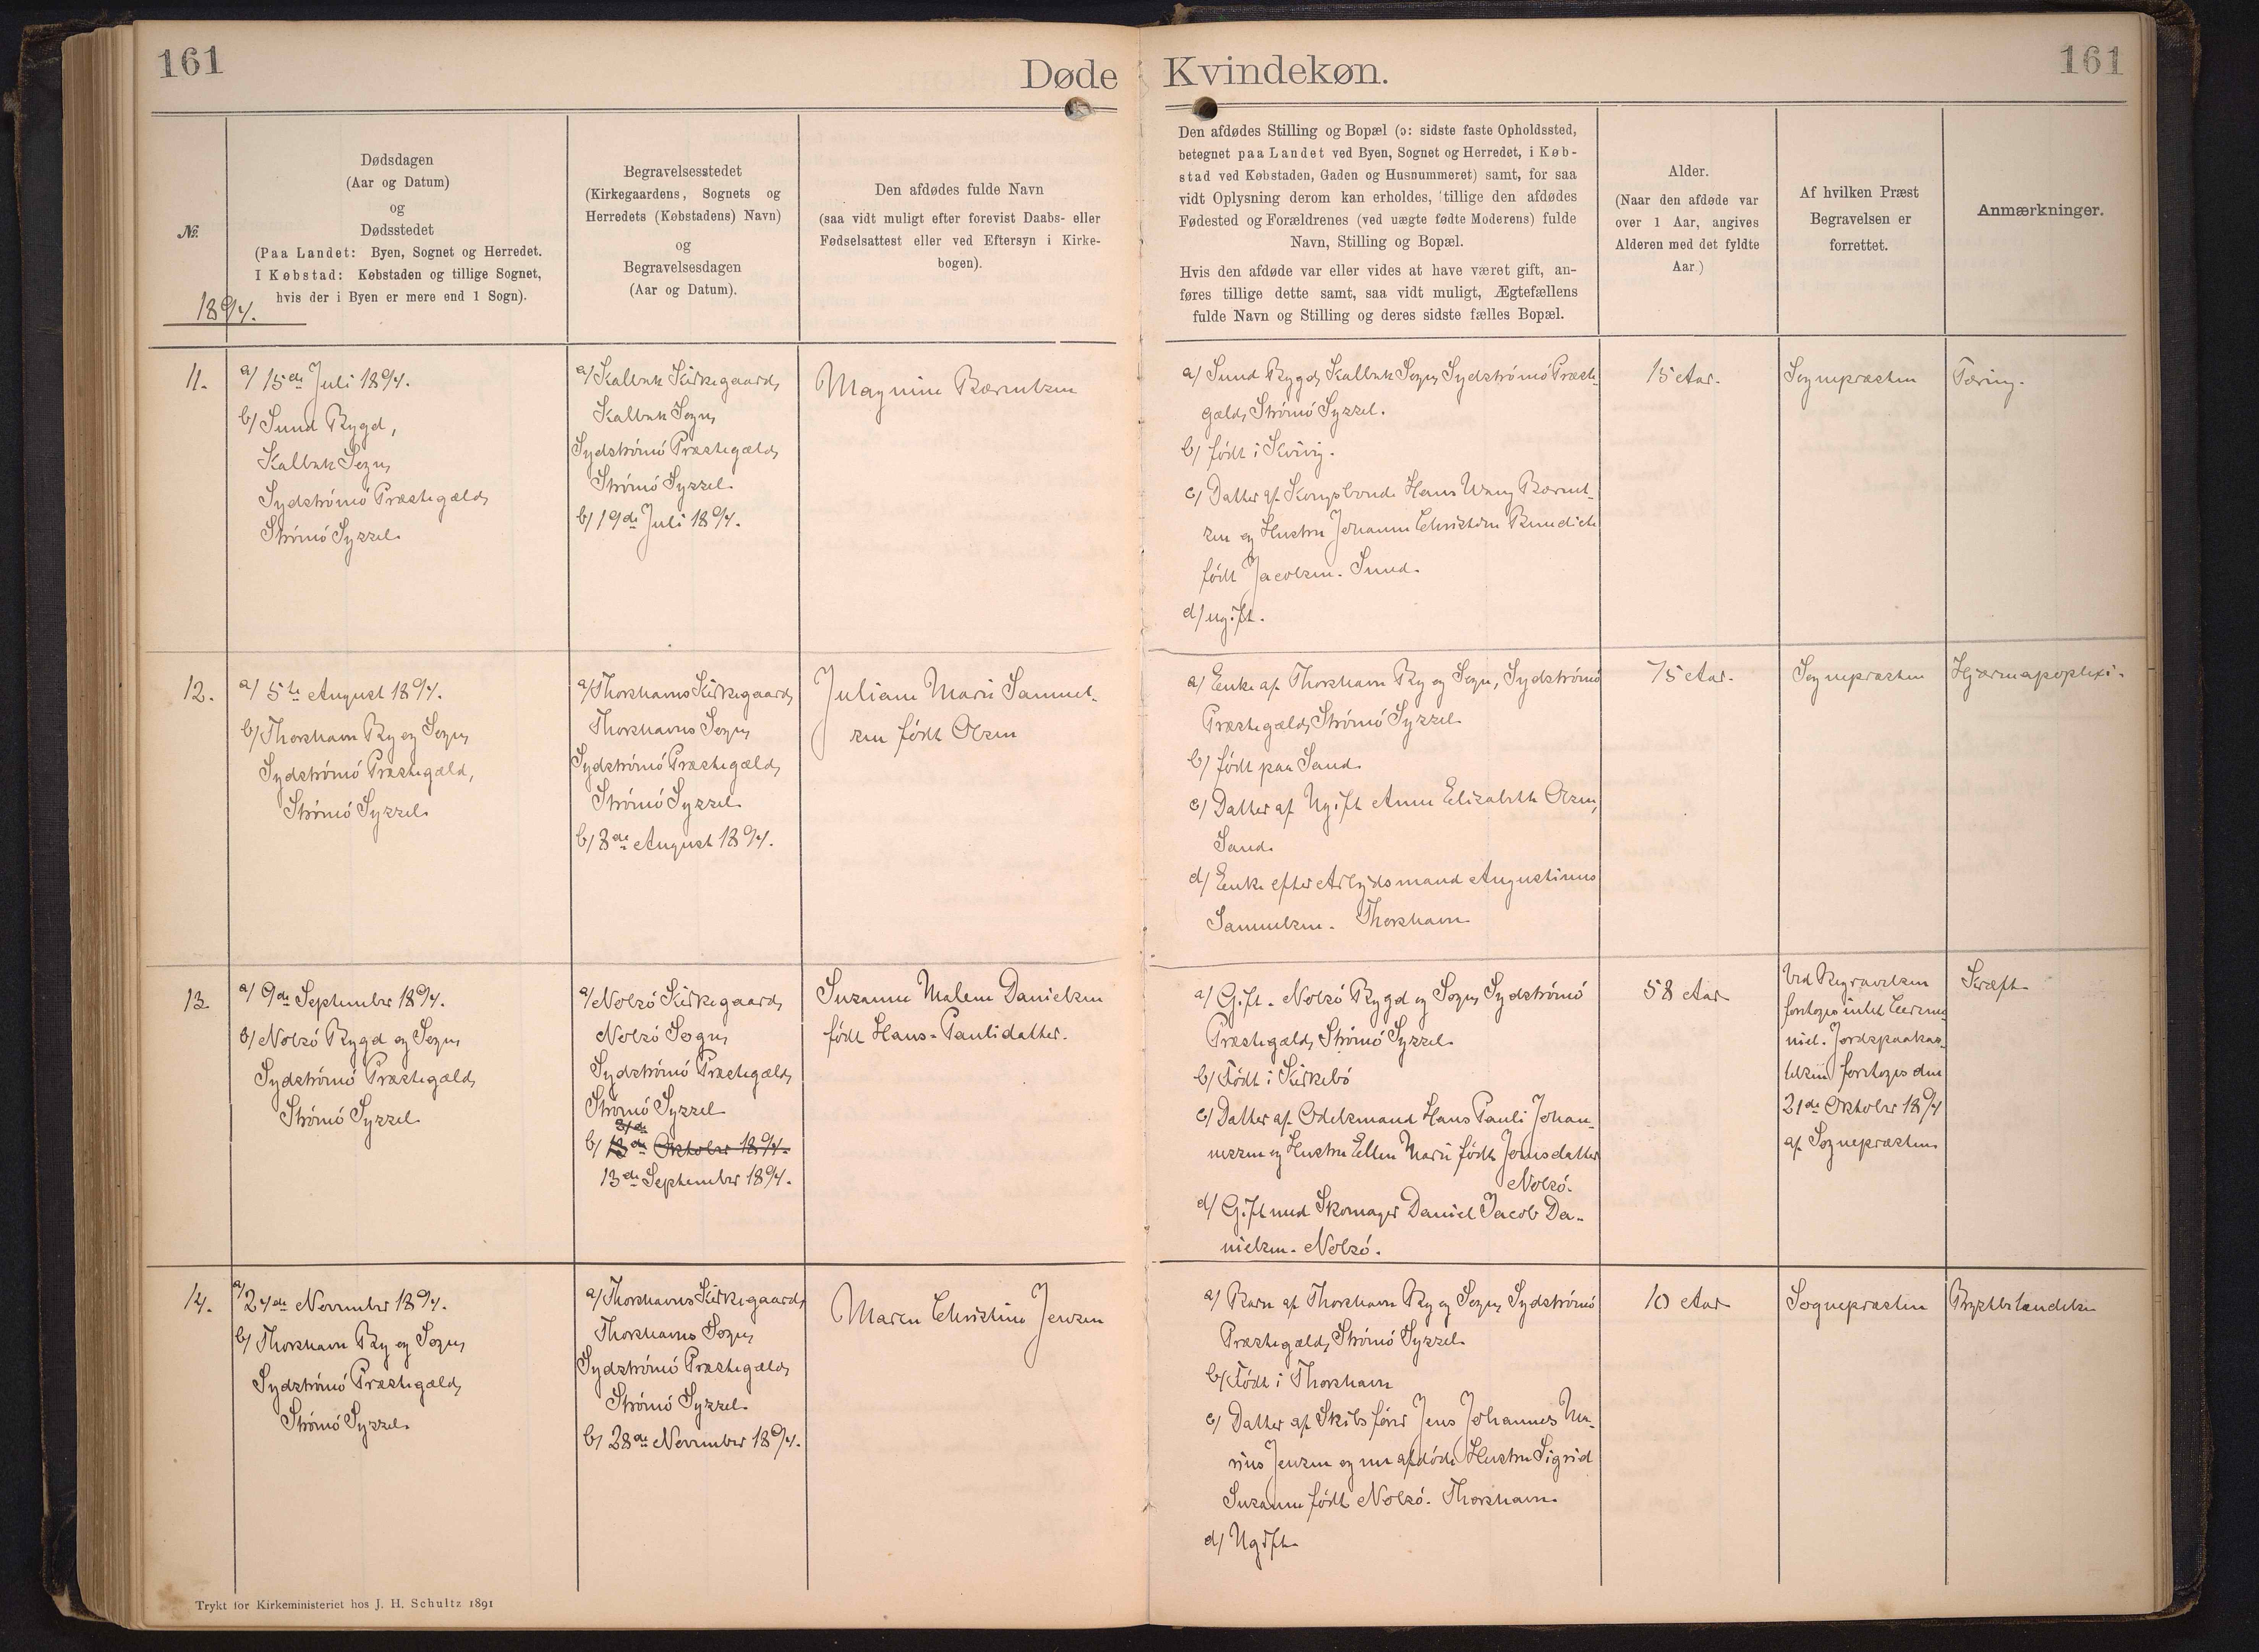 161
161
Døde Kvindekøn.
№
1894.
Dødsdagen
(Aar og Datum)
og
Dødsstedet
(Paa Landet: Byen, Sognet og Herredet.
I Købstad: Købstaden og tillige Sognet,
hvis der i Byen er mere end 1 Sogn).
Begravelsesstedet
(Kirkegaardens, Sognets og
Herredets (Købstadens) Navn)
og
Begravelsesdagen
(Aar og Datum).
Den afdødes fulde Navn
(saa vidt muligt efter forevist Daabs- eller
Fødselsattest eller ved Eftersyn i Kirke-
bogen).
Den afdødes Stilling og Bopæl (ɔ: sidste faste Opholdssted,
betegnet paa Landet ved Byen, Sognet og Herredet, i Køb-
stad ved Købstaden, Gaden og Husnummeret) samt, for saa
vidt Oplysning derom kan erholdes, tillige den afdødes
Fødested og Forældrenes (ved uægte fødte Moderens) fulde
Navn, Stilling og Bopæl.
Hvis den afdøde var eller vides at have været gift, an-
føres tillige dette samt, saa vidt muligt, Ægtefællens
fulde Navn og Stilling og deres sidste fælles Bopæl.
Alder.
(Naar den afdøde var
over 1 Aar, angives
Alderen med det fyldte
Aar.)
Af hvilken Præst
Begravelsen er
forrettet.
Anmærkninger.
11.
a/ 15de Juli 1894.
b/ Sund Bygd,
Kalbak Sogn,
Sydstrømø Præstegæld,
Strømø Syssel.
a/ Kalbak Kirkegaard,
Kalbak Sogn,
Sydstrømø Præstegæld,
Strømø Syssel.
b/ 19de Juli 1894.
Magnine Bærentsen
a/ Sund Bygd, Kalbak Sogn, Sydstrømø Præste-
gæld, Strømø Syssel.
b/ født i Kvivig.
c/ Datter af Kongsbonde Hans Wang Bærent-
sen og Hustru Johanne Christine Benedicte
født Jacobsen. Sund.
d/ ugift.
15 Aar.
Sognepræsten
Tæring.
12.
a/ 5te August 1894.
b/ Thorshavn By og Sogn,
Sydstrømø Præstegæld,
Strømø Syssel.
a/ Thorshavns Kirkegaard,
Thorshavns Sogn,
Sydstrømø Præstegæld,
Strømø Syssel.
b/ 8de August 1894.
Juliane Marie Samuel-
sen født Olsen
a/ Enke af Thorshavn By og Sogn, Sydstrømø
Præstegæld, Strømø Syssel.
b/ født paa Sand.
c/ Datter af Ugift Anne Elisabeth Olsen,
Sand.
d/ Enke efter Arbejdsmand Augustinus
Samuelsen. Thorshavn.
75 Aar.
Sognepræsten
Hjærneapoplexi.
13.
a/ 9de September 1894.
b/ Nolsø Bygd og Sogn,
Sydstrømø Præstegæld,
Strømø Syssel.
a/ Nolsø Kirkegaard,
Nolsø Sogn,
Sydstrømø Præstegæld,
Strømø Syssel
21de
b/ 13de Oktober 1894.
13de September 1894.
Susanne Malene Danielsen
født Hans-Paulidatter.
a/ Gift. Nolsø Bygd og Sogn, Sydstrømø
Præstegæld, Strømø Syssel.
b/ Født i Kirkebø
c/ Datter af Odelsmand Hans Pauli Johan-
nessen og Hustru Ellen Marie født Joensdatter
Nolsø.
d/ Gift med Skomager Daniel Jacob Da-
nielsen. Nolsø.
58 Aar
Ved Begravelsen
foretoges intet Ceremo-
niel. Jordspaakas-
telsen foretoges den
21de Oktober 1894
af Sognepræsten
Kræft.
14.
a/ 24de November 1894.
b/ Thorshavn By og Sogn,
Sydstrømø Præstegæld,
Strømø Syssel.
a/ Thorshavns Kirkegaard,
Thorshavns Sogn,
Sydstrømø Præstegæld,
Strømø Syssel.
b/ 28de November 1894.
Maren Christine Jensen
a/ Barn af Thorshavn By og Sogn, Sydstrømø
Præstegæld, Strømø Syssel.
b/ Født i Thorshavn
c/ Datter af Skibsfører Jens Johannes Ma-
rius Jensen og nu afdøde Hustru Sigrid
Susanne født Nolsø. Thorshavn.
d/ Ugift.
10 Aar
Sognepræsten
Brystbetændelse
Trykt for Kirkeministeriet hos J. H. Schultz 1891